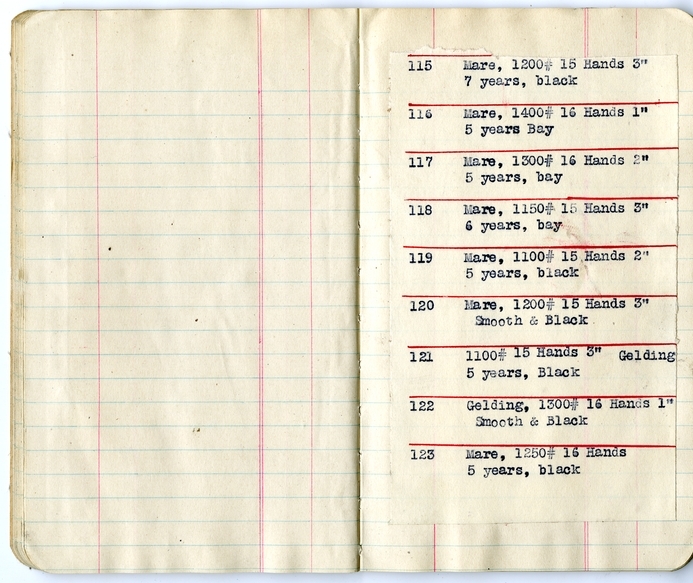 115 Mare, 1200# 15 Hands 3"
7 years, black
116 Mare, 1400# 16 Hands 1"
5 years Bay
117 Mare, 1300# 16 Hands 2"
5 years, bay
118 Mare, 1150# 15 Hands 3"
6 years, bay
119 Mare, 1100# 15 Hands 2"
5 years, black
120 Mare, 1200# 15 Hands 3"
Smooth & Black
121 1100# 15 Hands 3" Gelding
5 years, Black
122 Gelding, 1300# 16 Hands 1"
Smooth & Black
123 Mare, 1250# 16 Hands
5 years, black